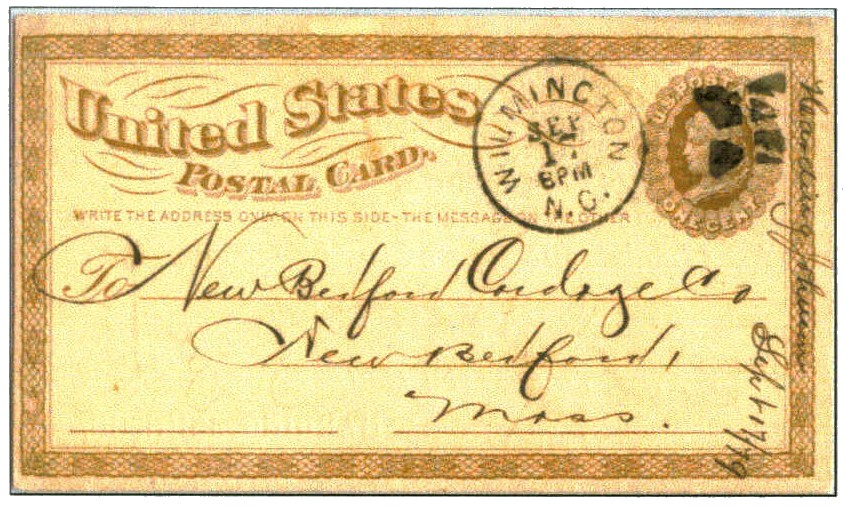 United States
POSTAL CARD.
WRITE THE ADDRESS ONLY ON THIS SIDE - THE MESSAGE ON THE OTHER
WILMINGTON
SEP
6PM
N.C.
U.S. POST
ONE CENT
To New Bedford Cordage Co
New Bedford,
Mass.
Sept 17/79